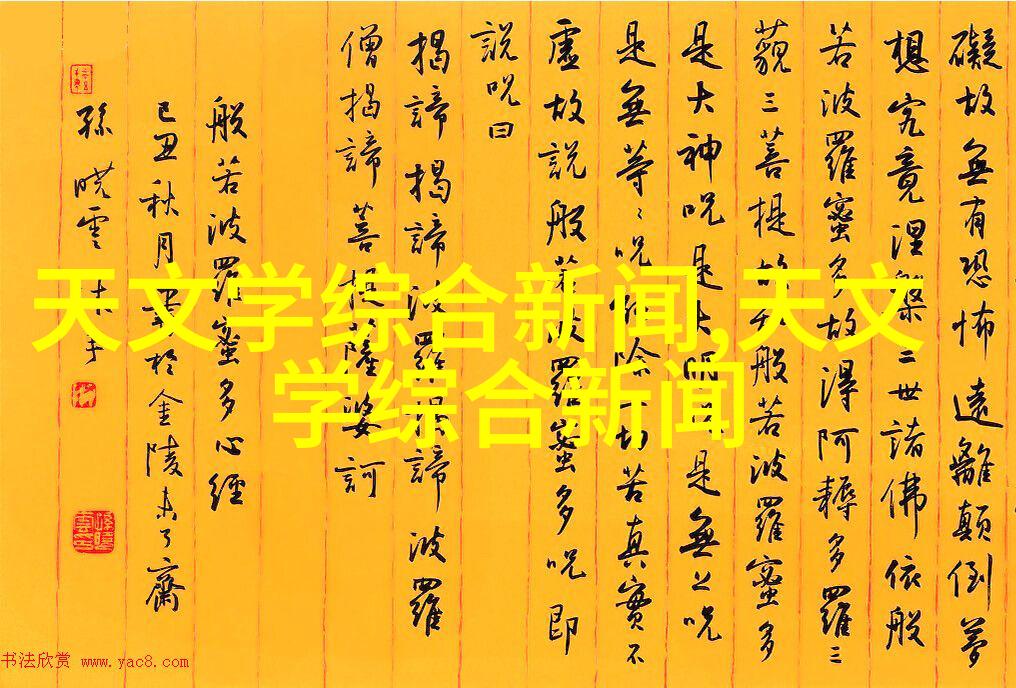 天文学综合新闻,天文
学综合新闻
礙故無有恐怖遠離顛倒夢
想究竟涅槃三世諸佛依般
若波羅蜜多故得阿耨多羅三
藐三菩提故知般若波羅蜜多
是大神呪是大明呪是無上呪
是無等々呪能除一切苦真實不
虛故說般若波羅蜜多呪即
說呪曰
揭諦揭諦波羅揭諦波羅
僧揭諦菩提薩婆訶
般若波羅蜜多心經
己丑秋月書於金陵未了齋
孫曉雲沐手
书法欣赏 www.yac8.com